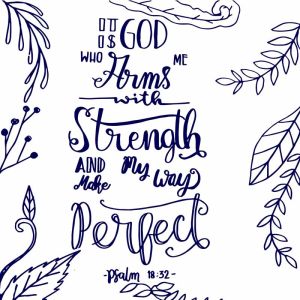 IT IS GOD
WHO Arms ME
with
Strength
AND Make My Way
Perfect
-Psalm 18:32-